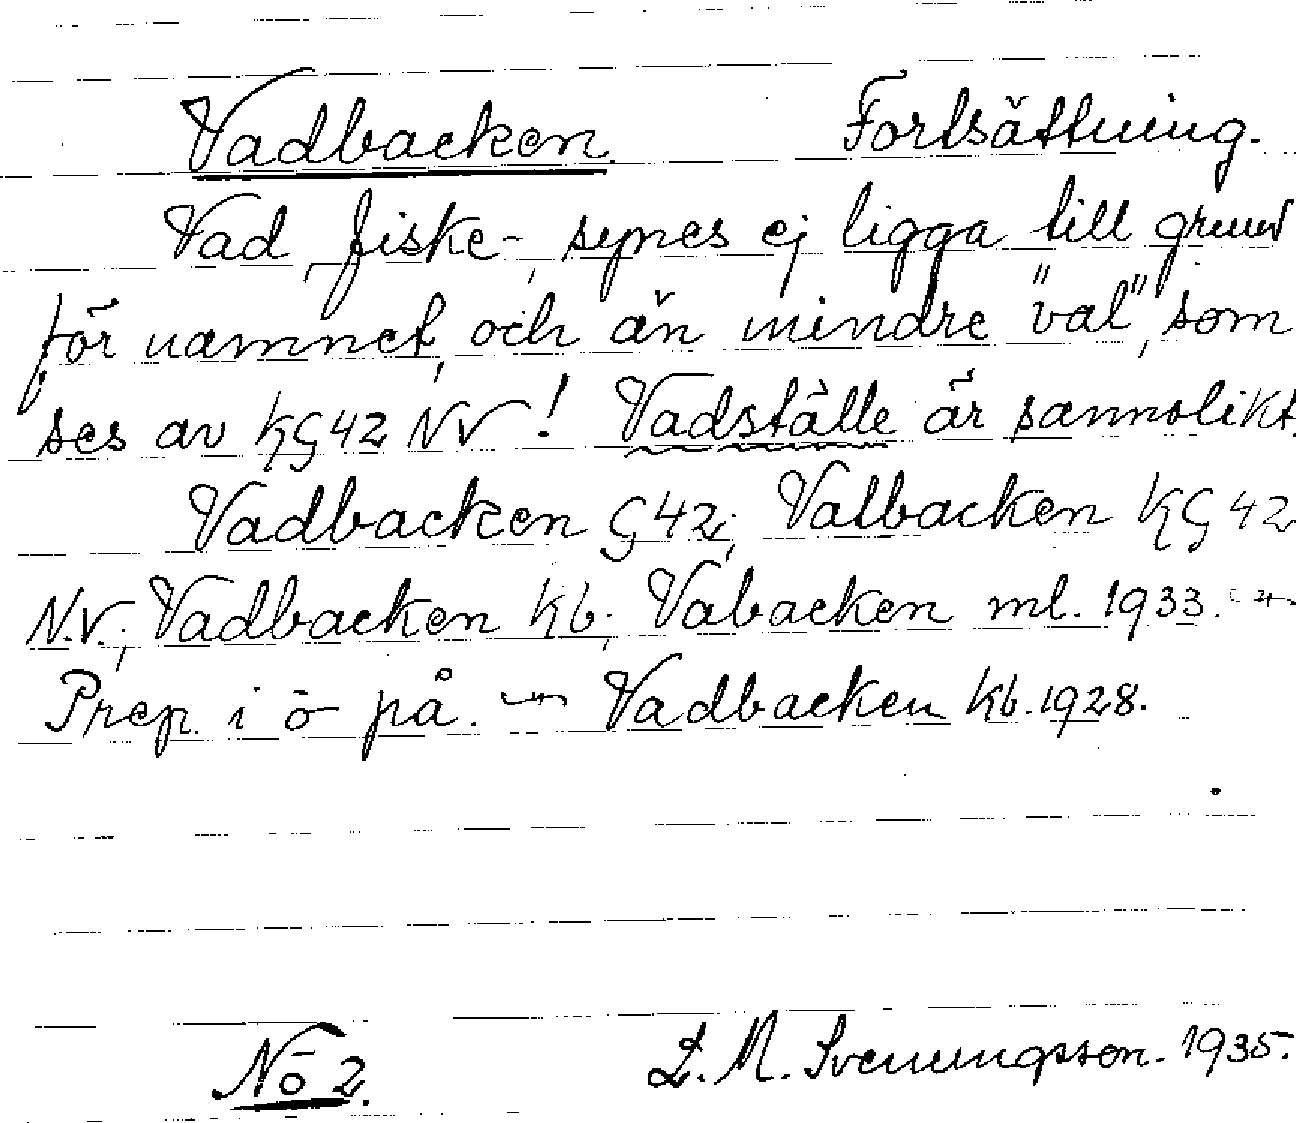 Vadbacken. Fortsättning.
Vad, fiske-, synes ej ligga till grund
för namnet, och än mindre "val", som
ses av KG42 NV! Vadställe är sannolikt.
Vadbacken G42; Valbacken KG42
N.V.; Vadbacken kb; Vabacken ml. 1933.
Prep. i o på. Vadbacken kb. 1928.
No 2. L. M. Svenungsson. 1935.